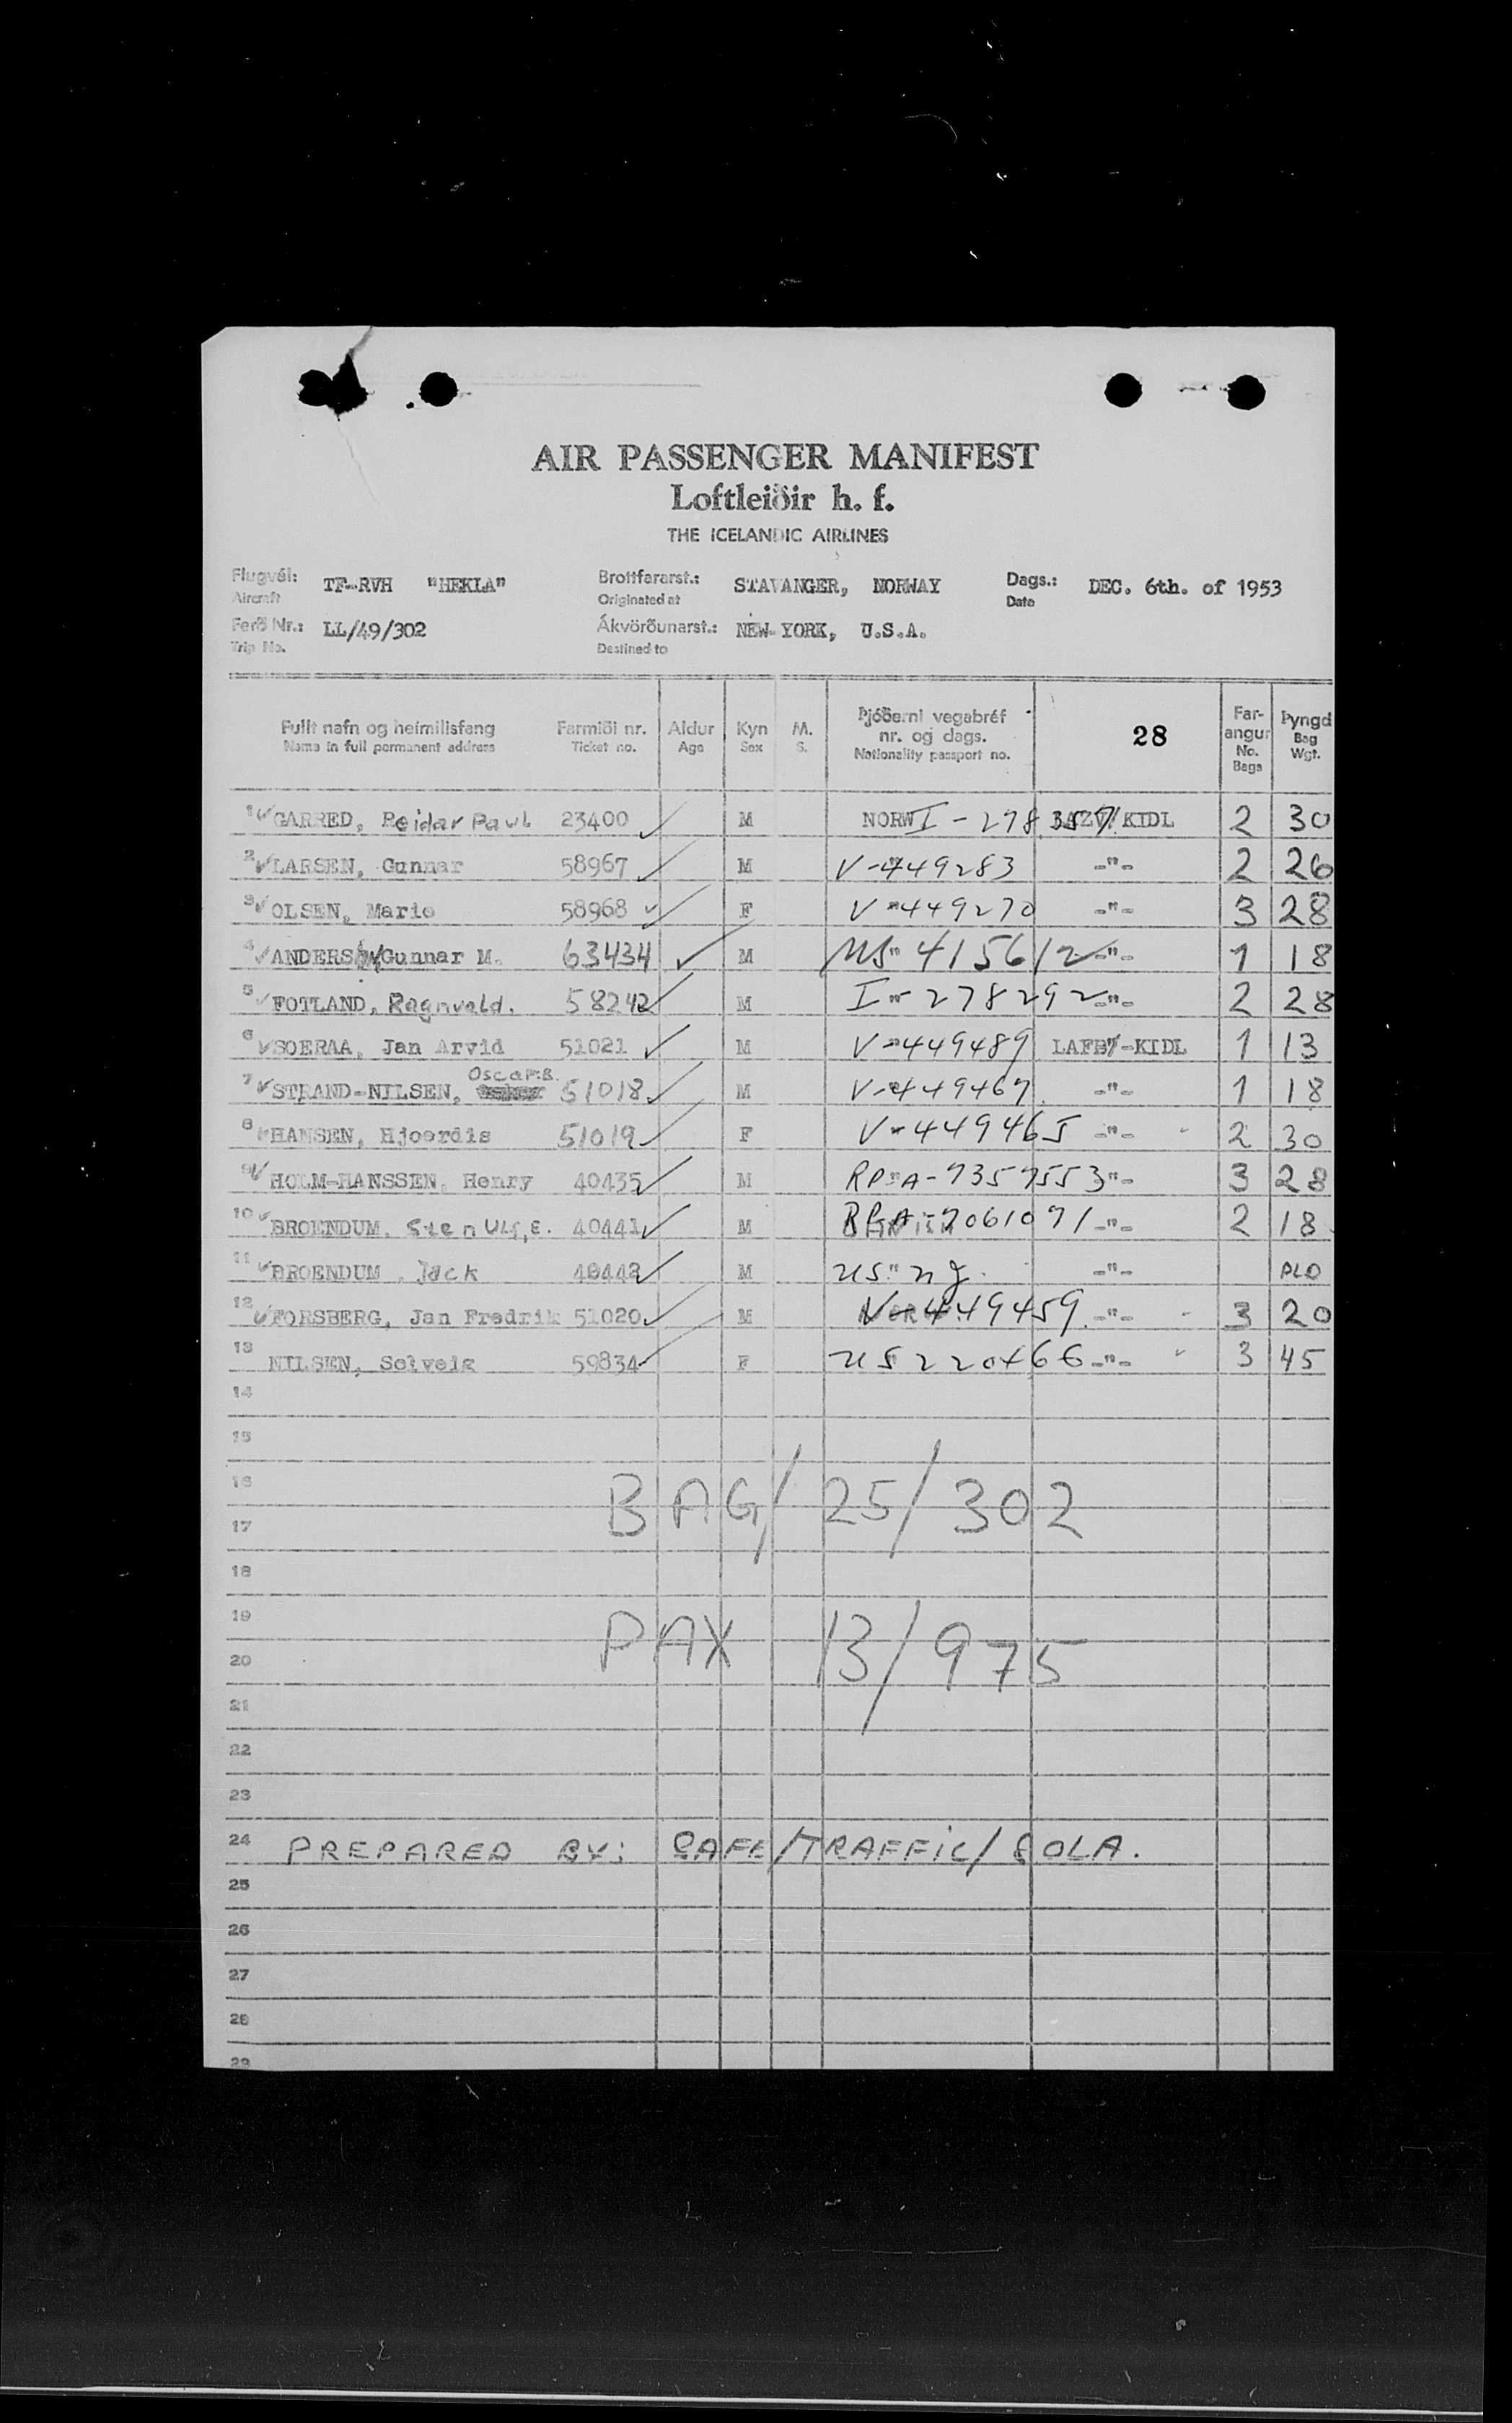 AIR PASSENGER MANIFEST
Loftleiðir h. f.
THE ICELANDIC AIRLINES
Flugvél: TF-RVH "HEKLA" Brottfararst.: STAVANGER, NORWAY Dags.: DEC. 6th. of 1953
Aircraft Originated at Date
Ferð Nr.: LL/49/302 Ákvörðunarst.: NEW YORK, U.S.A.
Trip No. Destined to
Fullt nafn og heimilisfang Farmiði nr. Aldur Kyn M. Þjóðerni vegabréf nr. og dags. 28 Farangur Þyngd
Name in full permanent address Ticket no. Age Sex S. Nationality passport no. No. Bags Bag Wgt.
1 GARRED, Reidar Paul 23400 M NORW I-278 357 /KIDL 2 30
2 LARSEN, Gunnar 58967 M V-449283 -"- 2 26
3 OLSEN, Marie 58968 F V-449270 -"- 3 28
4 Gunnar M. 63434 M US" 415612 -"- 1 18
5 FOTLAND, Ragnvald. 58242 M I"-278292 -"- 2 28
6 SOERAA, Jan Arvid 51021 M V-449489 -KIDL 1 13
7 STRAND-NILSEN, Oscar.B. 51018 M V-449467 -"- 1 18
8 HANSEN, Hjoerdis 51019 F V-449465 -"- 2 30
9 HOLM-HANSSEN, Henry 40435 M RP"A-7357553 "- 3 28
10 BROENDUM, Sten Ulf,E. 40441 M RP A-7061071 -"- 2 18
11 BROENDUM, Jack 40442 M US" -"- PLD
12 FORSBERG, Jan Fredrik 51020 M V-449459 -"- 3 20
13 NILSEN, Solveig 59834 F US 220466 -"- 3 45
14
15
16
BAG/ 25/302
17
18
19
PAX 13/975
20
21
22
23
24 PREPARED BY: SAFE/TRAFFIC/SOLA.
25
26
27
28
29